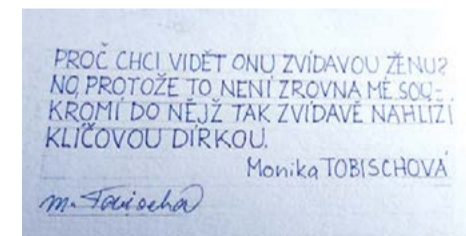 PROČ CHCI VIDĚT ONU ZVÍDAVOU ŽENU?
NO, PROTOŽE TO NENÍ ZROVNA MÉ SOU-
KROMÍ DO NĚJŽ TAK ZVÍDAVĚ NAHLÍŽÍ
KLÍČOVOU DÍRKOU.
Monika TOBISCHOVÁ